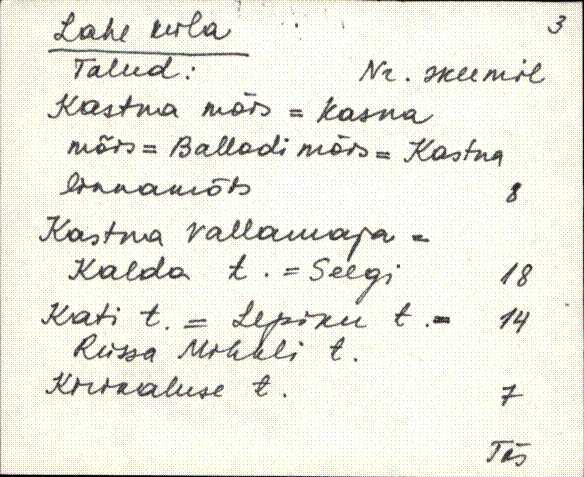 Lahe küla 3
Talud: Nr. skeemil
Kastna mõis = Kasna
mõis = Balladi mõis = Kastna
linnamõis 8
Kastna vallamaja =
Kalda t. = Seegi 18
Kati t. = Lepiku t. = 14
Riissa Mihkli t.
t. 7
Tõs